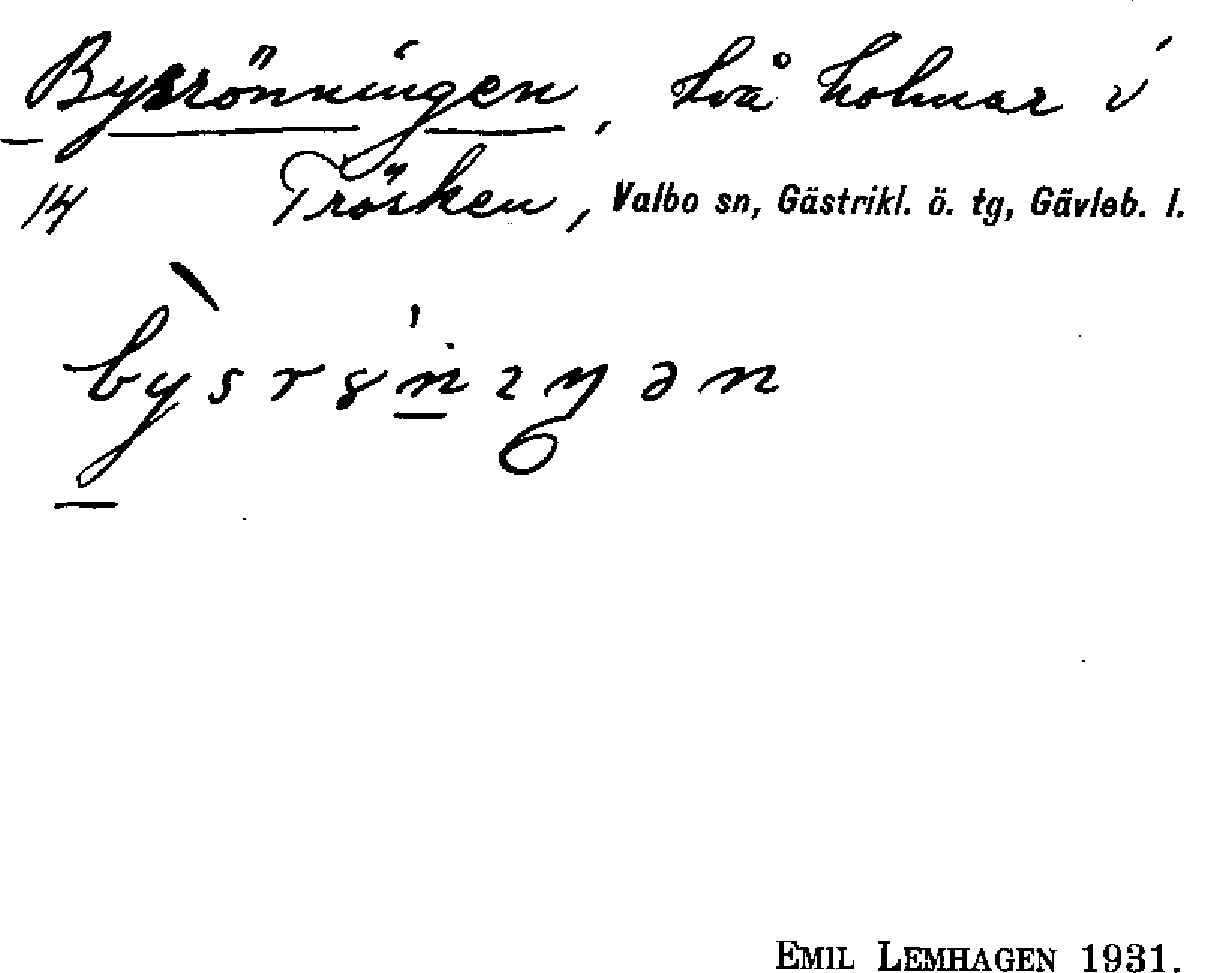 Bysrönningen, två holmar i
14 Trösken, Valbo sn, Gästrikl. ö. tg, Gävleb. l.
EMIL LEMHAGEN 1931.